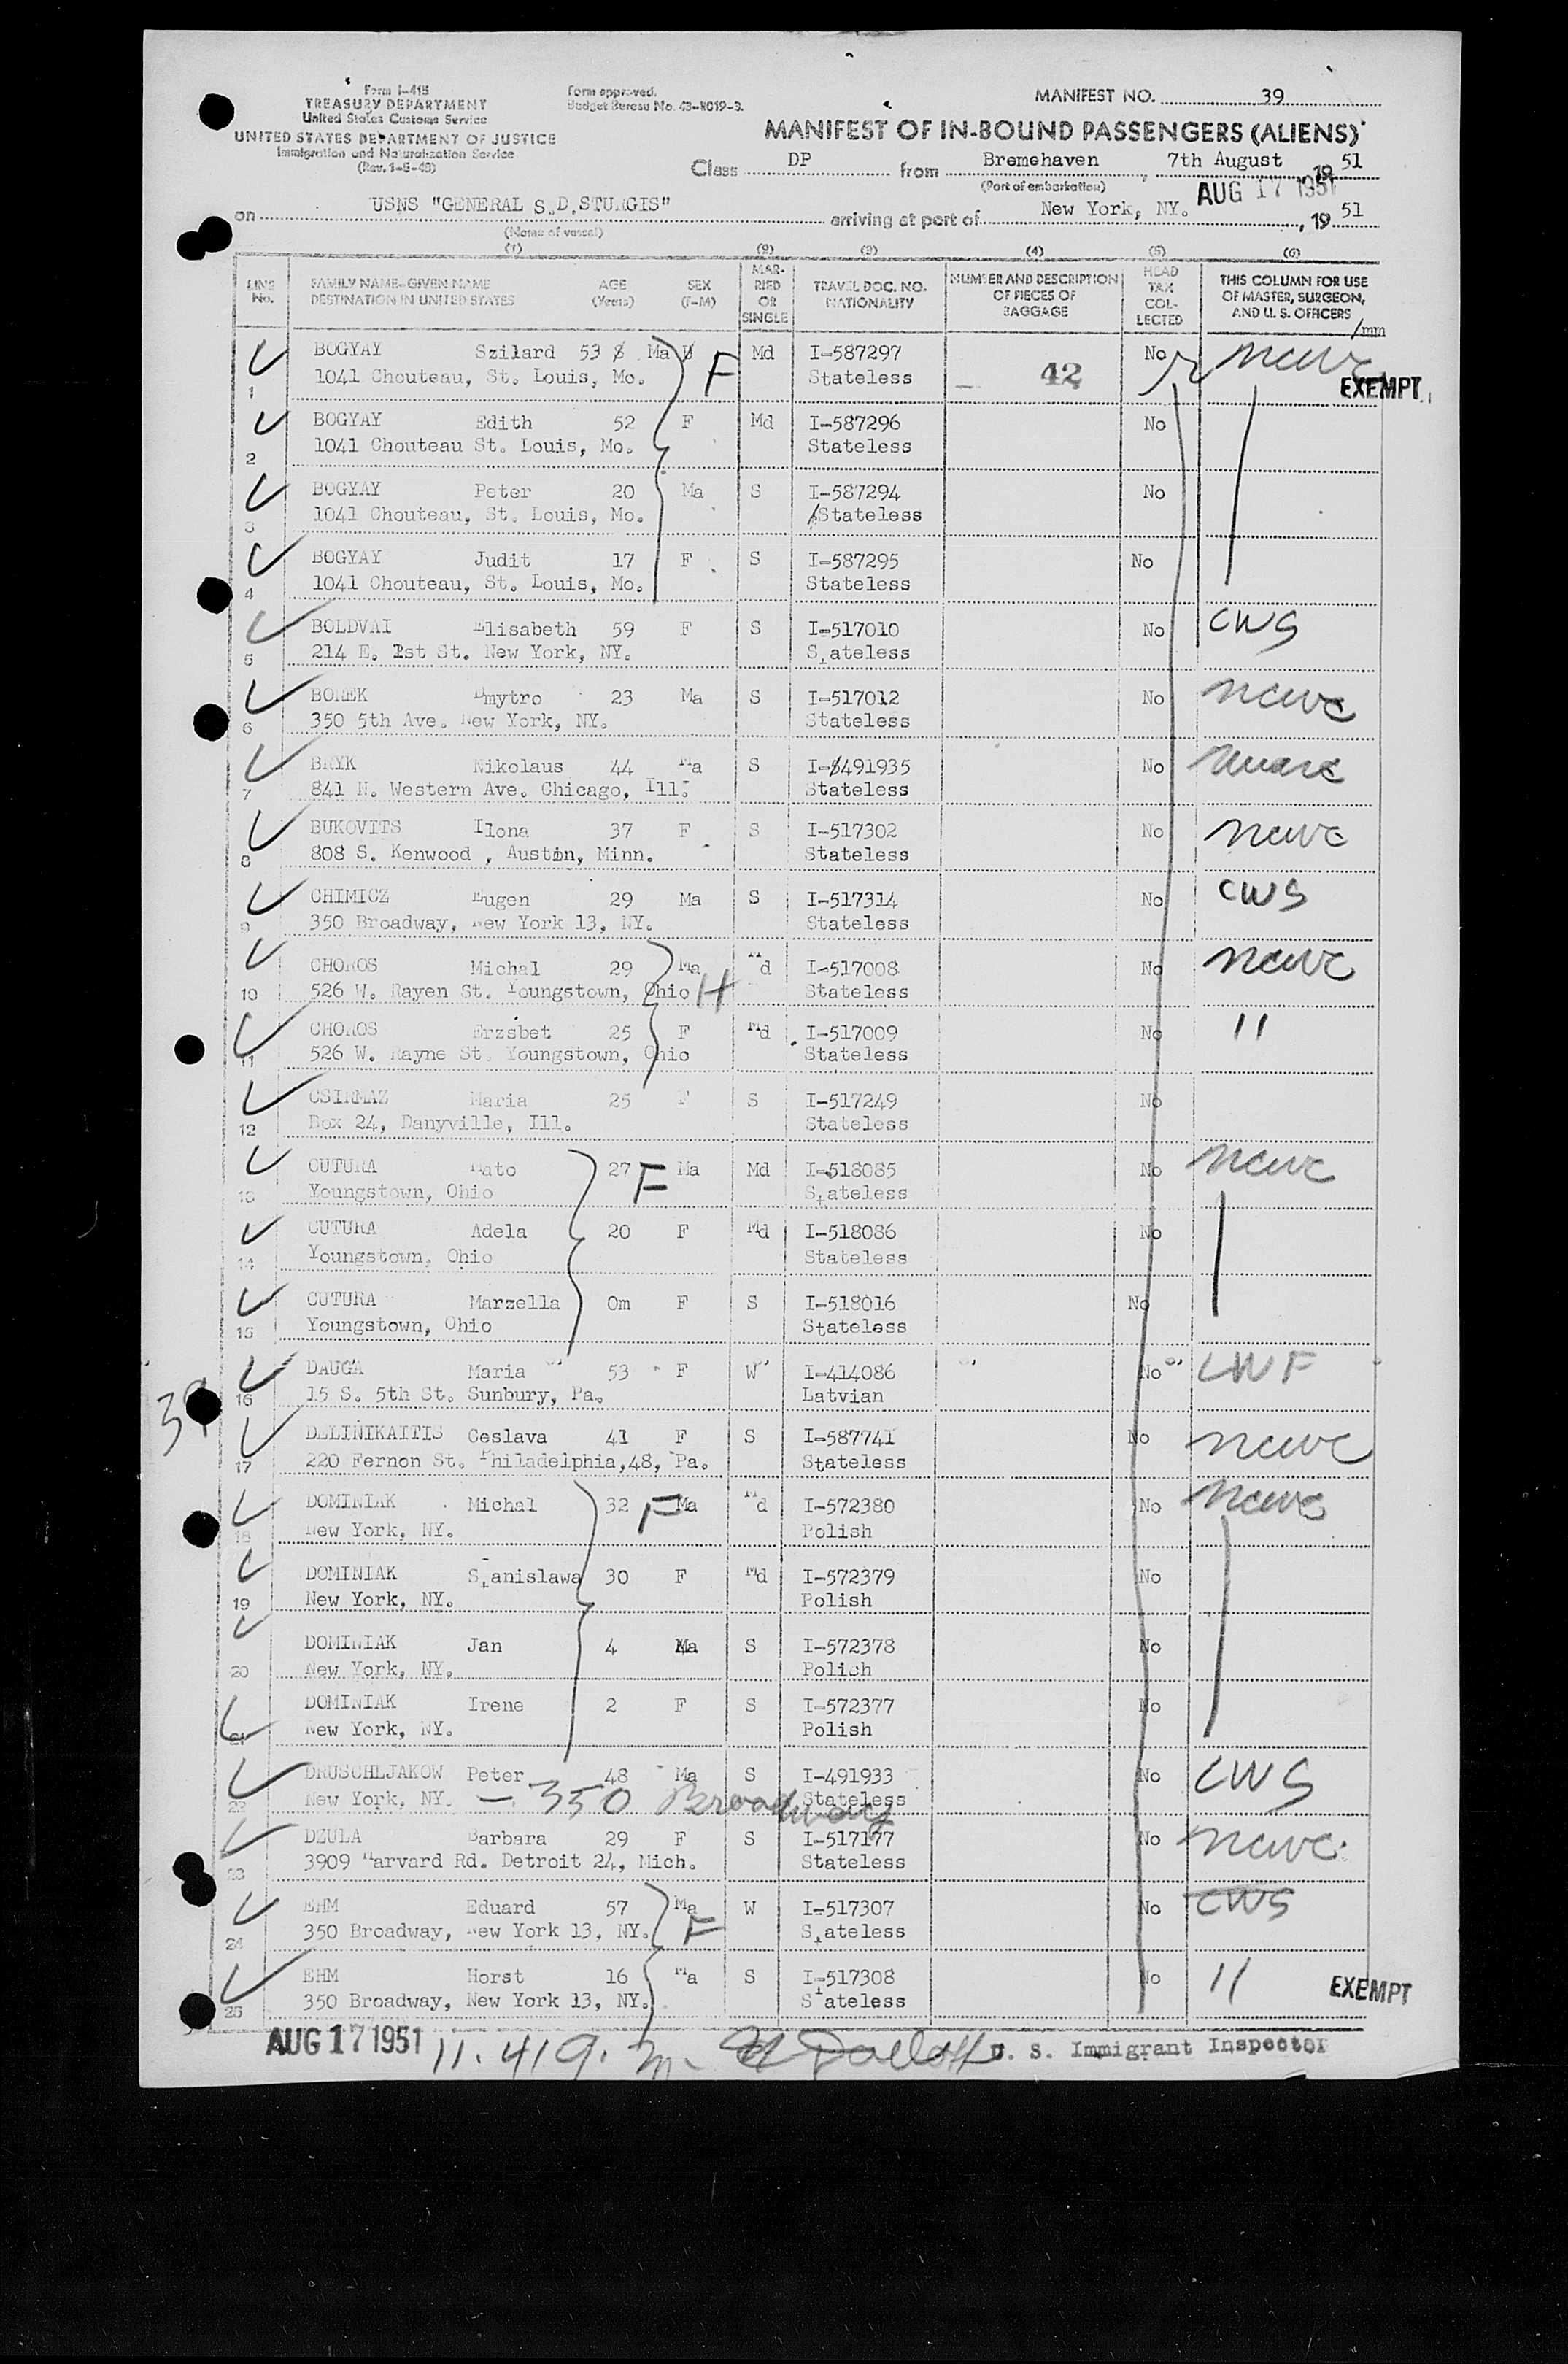 Form I-415
TREASURY DEPARTMENT
United States Customs Service
UNITED STATES DEPARTMENT OF JUSTICE
Immigration and Naturalization Service
(Rev. 1-5-49)
Form approved.
Budget Bureau No. 43-R019-3.
MANIFEST NO. 39
MANIFEST OF IN-BOUND PASSENGERS (ALIENS)
Class DP from Bremehaven, 7th August, 19 51
(Port of embarkation)
AUG 17 1951
on USNS "GENERAL S.D.STURGIS" arriving at port of New York, NY., 19 51
(Name of vessel)
(1) (2) (3) (4) (5) (6)
LINE No.
FAMILY NAME-GIVEN NAME AGE SEX
DESTINATION IN UNITED STATES (Years) (F-M)
MAR-RIED OR SINGLE
TRAVEL DOC. NO. NATIONALITY
NUMBER AND DESCRIPTION OF PIECES OF BAGGAGE
HEAD TAX COL-LECTED
THIS COLUMN FOR USE OF MASTER, SURGEON, AND U. S. OFFICERS
/mm
BOGYAY Szilard 53 Ma Md I-587297 No ncwc
1 1041 Chouteau, St. Louis, Mo. F Stateless 42 EXEMPT
BOGYAY Edith 52 F Md I-587296 No
2 1041 Chouteau St. Louis, Mo. Stateless
BOGYAY Peter 20 Ma S I-587294 No
3 1041 Chouteau, St. Louis, Mo. Stateless
BOGYAY Judit 17 F S I-587295 No
4 1041 Chouteau, St. Louis, Mo. Stateless
BOLDVAI Elisabeth 59 F S I-517010 No CWS
5 214 E. 1st St. New York, NY. Stateless
BOREK Dmytro 23 Ma S I-517012 No ncwc
6 350 5th Ave. New York, NY. Stateless
BRYK Nikolaus 44 Ma S I-491935 No
7 841 N. Western Ave. Chicago, Ill. Stateless
BUKOVITS Ilona 37 F S I-517302 No ncwc
8 808 S. Kenwood , Austin, Minn. Stateless
CHIMICZ Eugen 29 Ma S I-517314 No CWS
9 350 Broadway, New York 13, NY. Stateless
CHOROS Michal 29 Ma Md I-517008 No ncwc
10 526 W. Rayen St. Youngstown, Ohio H Stateless
CHOROS Erzsbet 25 F Md I-517009 No 11
11 526 W. Rayne St. Youngstown, Ohio Stateless
CSIRMAZ Maria 25 F S I-517249 No
12 Box 24, Danyville, Ill. Stateless
CUTURA Mato 27 F Ma Md I-518085 No ncwc
13 Youngstown, Ohio Stateless
CUTURA Adela 20 F Md I-518086 No
14 Youngstown, Ohio Stateless
CUTURA Marzella 0m F S I-518016 No
15 Youngstown, Ohio Stateless
DAUGA Maria 53 F W I-414086 No LWF
16 15 S. 5th St. Sunbury, Pa. Latvian
39
DELINIKAITIS Ceslava 41 F S I-587741 No ncwc
17 220 Fernon St. Philadelphia,48, Pa. Stateless
DOMINIAK Michal 32 F Ma Md I-572380 No ncwc
18 New York, NY. Polish
DOMINIAK Stanislawa 30 F Md I-572379 No
19 New York, NY. Polish
DOMINIAK Jan 4 Ma S I-572378 No
20 New York, NY. Polich
DOMINIAK Irene 2 F S I-572377 No
21 New York, NY. Polish
DRUSCHLJAKOW Peter 48 Ma S I-491933 No CWS
22 New York, NY. — 350 Broadway Stateless
DZULA Barbara 29 F S I-517177 No ncwc
23 3909 Harvard Rd. Detroit 24, Mich. Stateless
EHM Eduard 57 Ma W I-517307 No CWS
24 350 Broadway, New York 13, NY. F Stateless
EHM Horst 16 Ma S I-517308 No 11
25 350 Broadway, New York 13, NY. Stateless EXEMPT
AUG 17 1951 11. 419. U. S. Immigrant Inspector